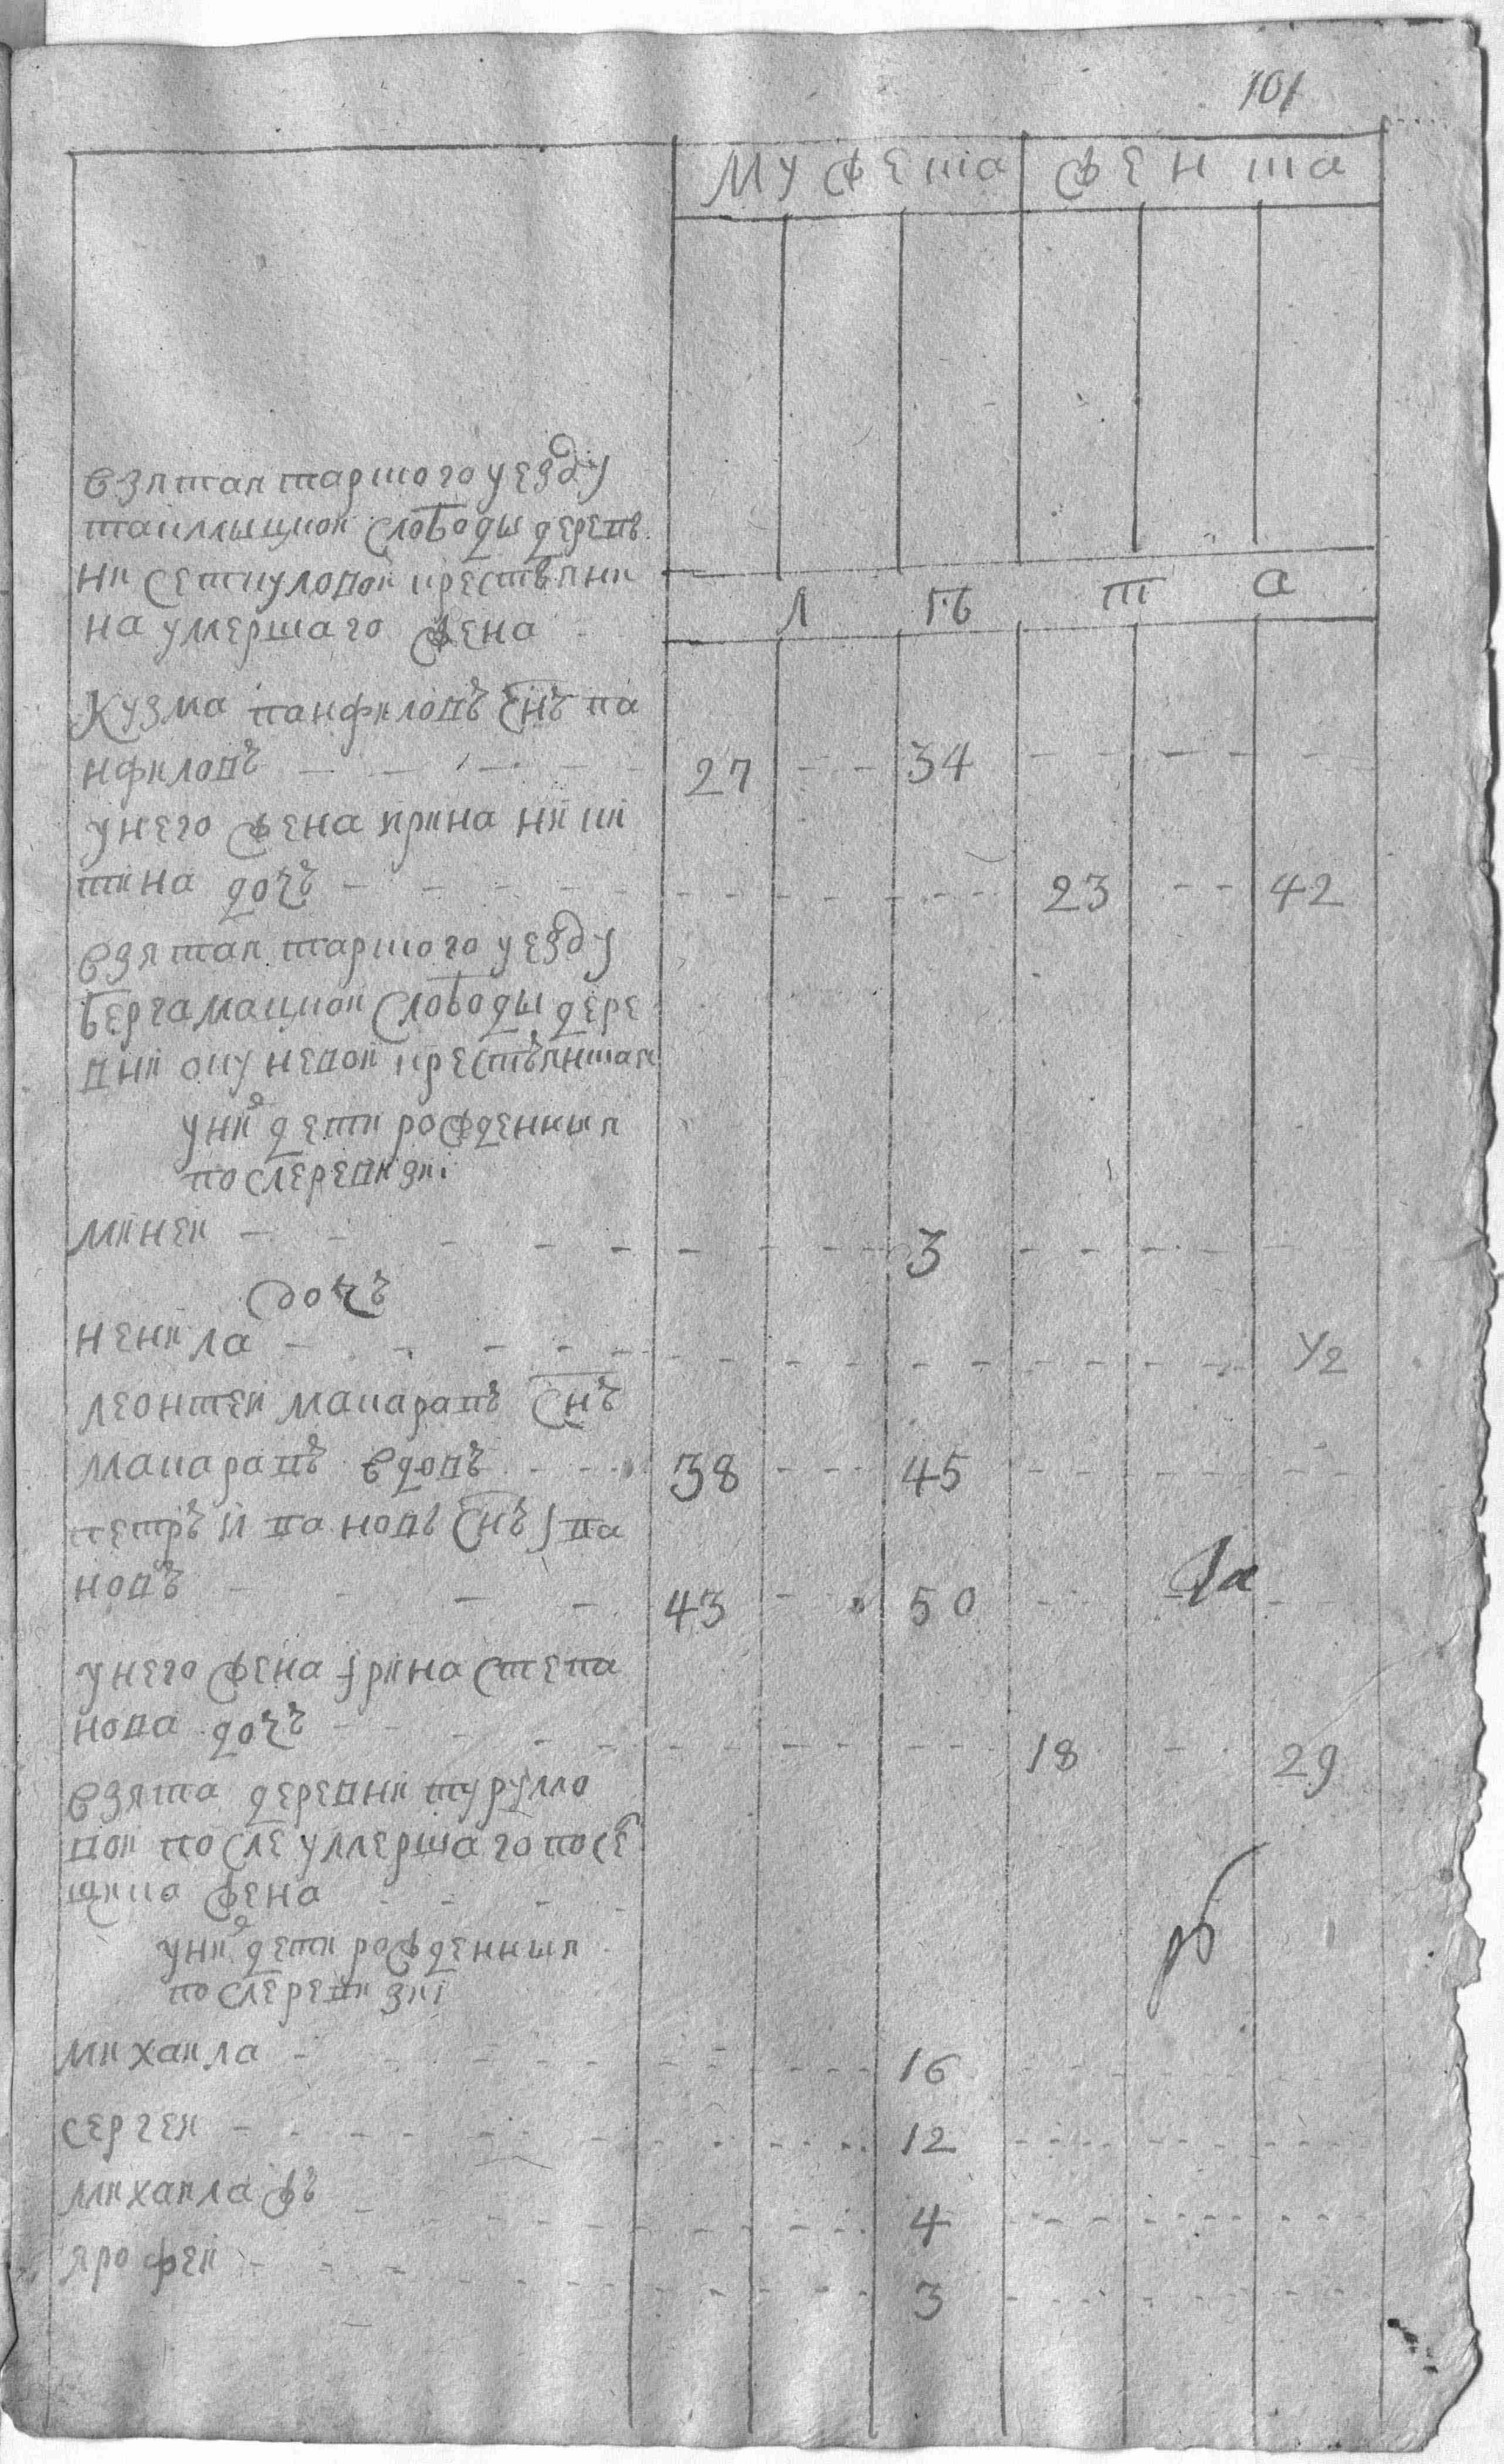 101
мужеска женска
взятая тарского уезду
таиклыцкои слободы деревь
ни сеткуловои крестьяни
на умершаго жена
лѣ та
Кузма панфиловъ снъ па
нфиловъ 27 34
у него жена ирина ники
тина дочь 23 42
взятая тарского уезду
бергамацкои слободы дере
вни окуневои крестьянская
у них дети рожденныя
после ревизиі
минеи 3
дочь
ненила 1/2
леонтеи макаравъ снъ
макаравъ вдовъ 38 45
петръ ивановъ снъ ива
новъ 43 50
у него жена ирина степа
нова дочь 18 29
взята деревни турумо
вои после умершаго посе
щика жена
у них дети рожденныя
после ревизиі
михаила 16
сергеи 12
михаила жъ 4
ярофеи 3